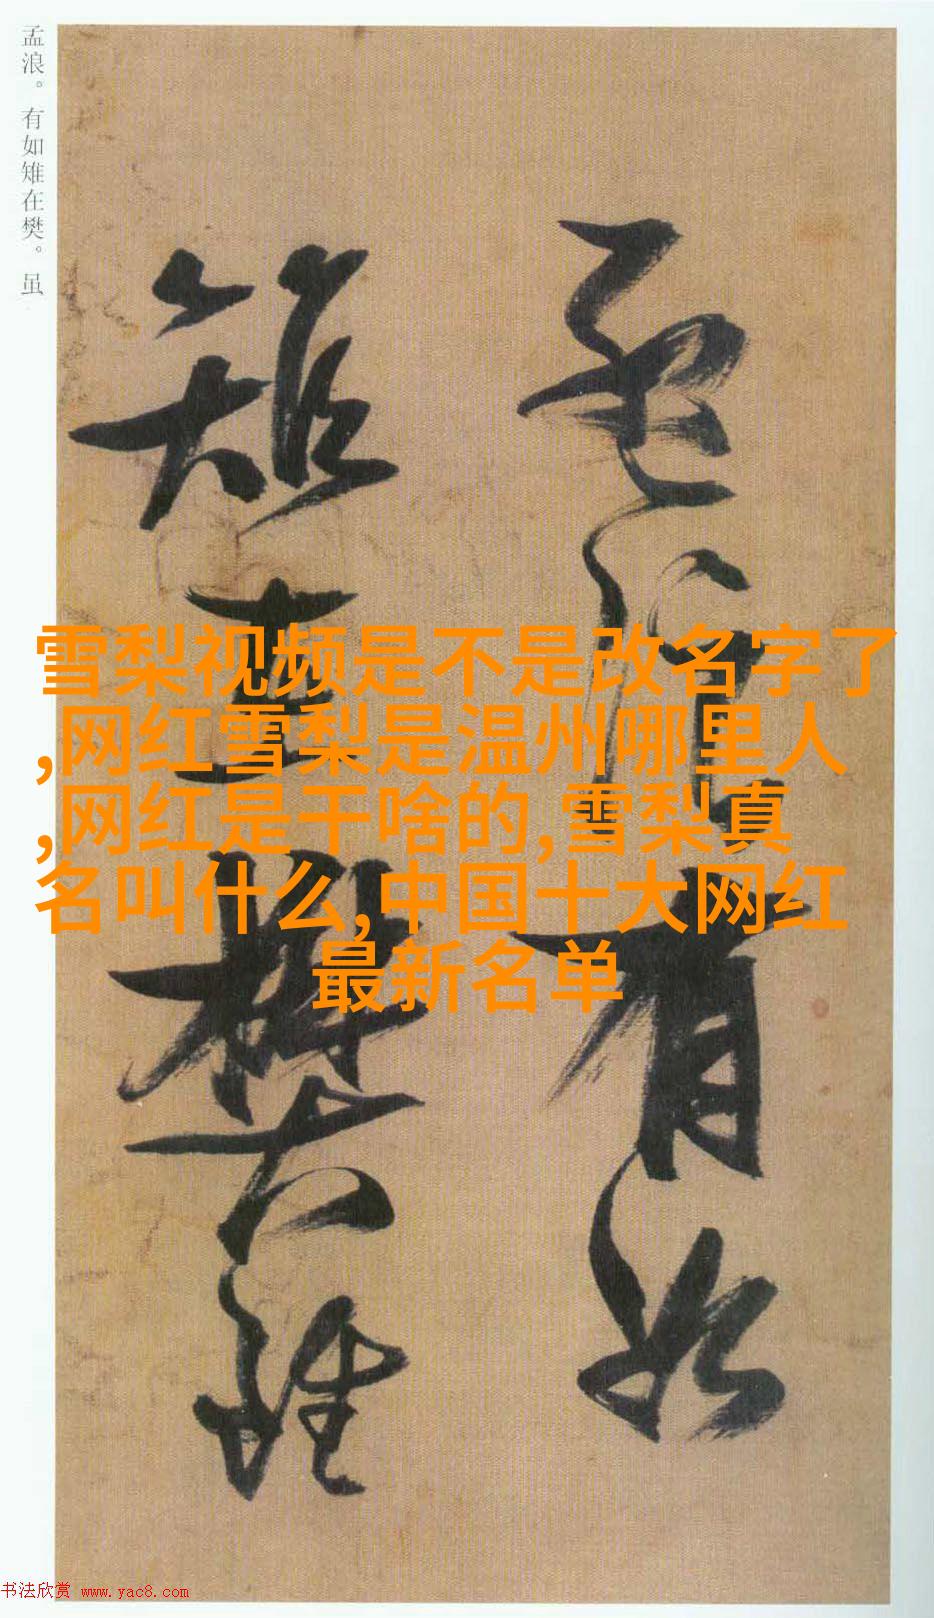 孟浪。有如雉在樊。虽
孟浪有如
雉在樊虽
雪梨视频是不是改名字了
,网红雪梨是温州哪里人
,网红是干啥的,雪梨真
名叫什么,中国十大网红
最新名单
书法欣赏 www.yac8.com